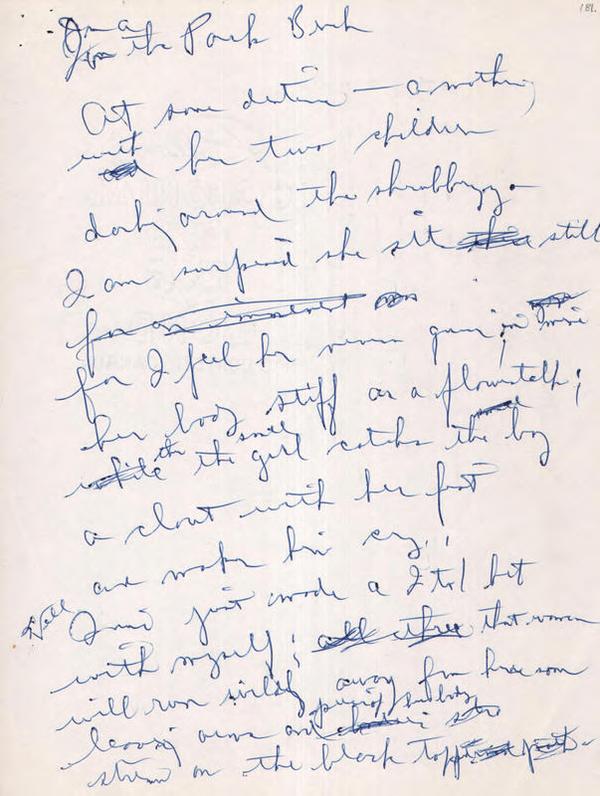 181.
On a
In the Park Bench
At some distance — a mother,
with her two children
darting around the shrubbery.
I am surprised she sits still
for an instant
for I feel her nerves quiver in mine
her body stiff as a flowerstalk;
while the small
the girl catches the boy
a clout with her foot
and makes him cry.
Well I've just made a 2 to 1 bet
with myself; all three that woman
will run wildly away from here soon
leaving arms and pieces of her body
strewn on the black top